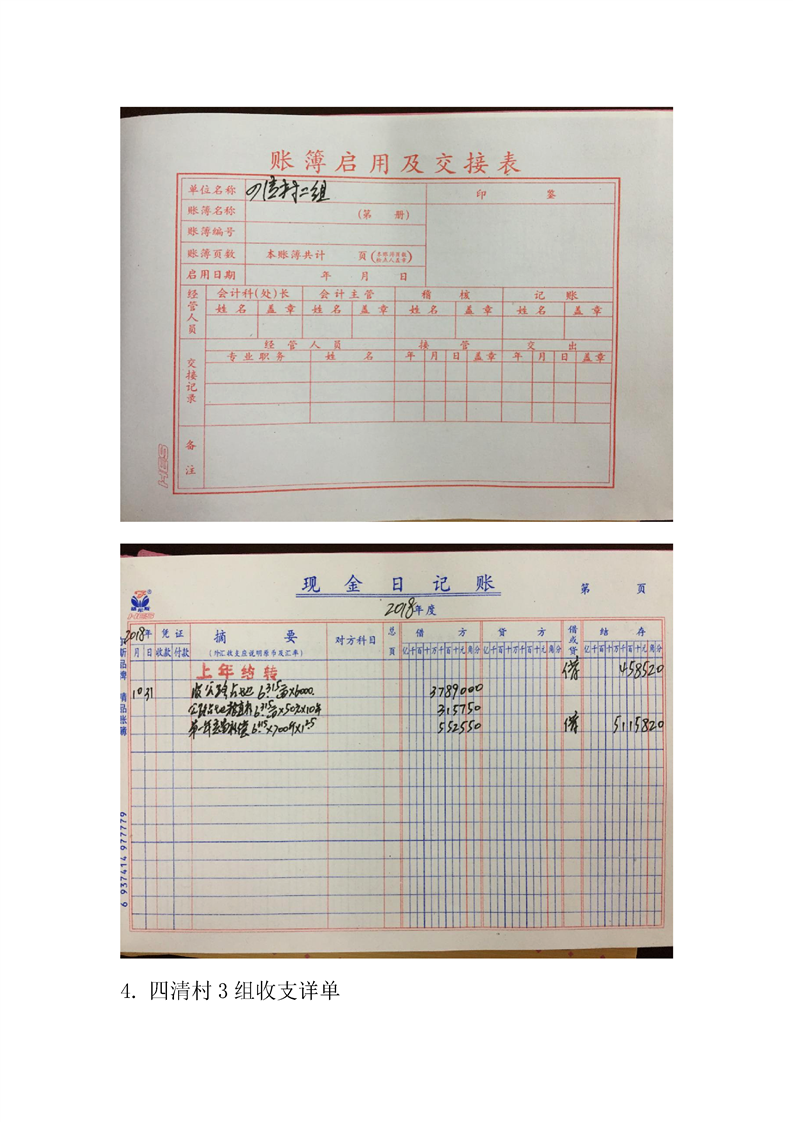 账簿启用及交接表
单位名称 四清村二组 印 鉴
账簿名称 (第 册)
账簿编号
账簿页数 本账簿共计 页
启用日期 年 月 日
经管人员 会计科(处)长 会计主管 稽 核 记 账
姓名 盖章 姓名 盖章 姓名 盖章 姓名 盖章
交接记录 经管人员 接管 交出
专业职务 姓名 年 月 日 盖章 年 月 日 盖章
备注
现金日记账 第 页
2018年度
2018年 凭证 摘要 对方科目 总页 借方 贷方 借或贷 结存
月 日 收款 付款 (外汇收支应说明原币及汇率) 亿千百十万千百十元角分 亿千百十万千百十元角分 亿千百十万千百十元角分
上年结转 借 458520
10 31 6.315亩×6000 3789000
6.315亩×50%×10年 315750
552550 借 5115820
6 937414 977779
4. 四清村 3 组收支详单